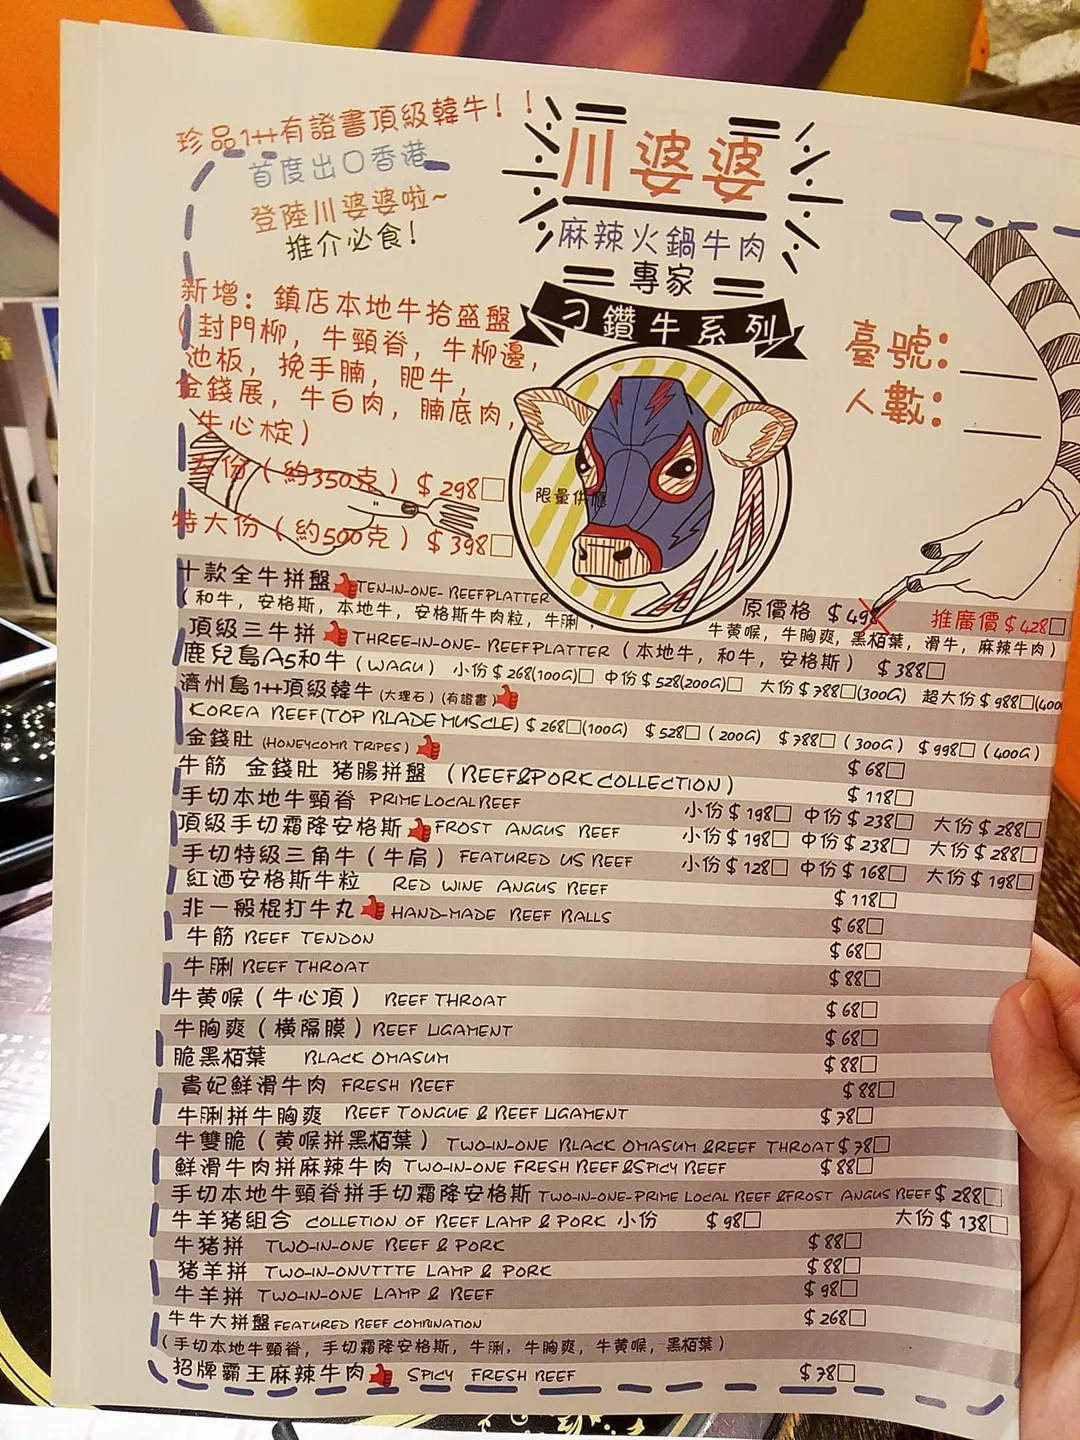 珍品1++有證書頂級韓牛！！
首度出口香港
登陸川婆婆啦~
推介必食！
川婆婆
麻辣火鍋牛肉
專家
刁鑽牛系列
新增：鎮店本地牛拾盛盤
（封門柳，牛頸脊，牛柳邊，
池板，挽手腩，肥牛，
金錢展，牛白肉，腩底肉，
牛心椗）
大份（約350克）$298□
特大份（約500克）$398□
限量供應
臺號：____
人數：____
十款全牛拼盤 TEN-IN-ONE-BEEFPLATTER 原價格 $498 推廣價$428□
（和牛，安格斯，本地牛，安格斯牛肉粒，牛脷，牛黄喉，牛胸爽，黑栢葉，滑牛，麻辣牛肉）
頂級三牛拼 THREE-IN-ONE-BEEFPLATTER（本地牛，和牛，安格斯） $388□
鹿兒島A5和牛（WAGU） 小份$268(100G)□ 中份$528(200G)□ 大份$788□(300G) 超大份$988□(400
濟州島1++頂級韓牛(大理石)(有證書)
KOREA BEEF(TOP BLADE MUSCLE) $268□(100G) $528□(200G) $788□(300G) $998□(400G)
金錢肚 (HONEYCOMB TRIPES) $68□
牛筋 金錢肚 猪腸拼盤 （BEEF&PORK COLLECTION） $118□
手切本地牛頸脊 PRIME LOCAL BEEF 小份$198□ 中份$238□ 大份$288□
頂級手切霜降安格斯 FROST ANGUS BEEF 小份$198□ 中份$238□ 大份$288□
手切特級三角牛（牛肩）FEATURED US BEEF 小份$128□ 中份$168□ 大份$198□
紅酒安格斯牛粒 RED WINE ANGUS BEEF $118□
非一般棍打牛丸 HAND-MADE BEEF BALLS $68□
牛筋 BEEF TENDON $68□
牛脷 BEEF THROAT $88□
牛黄喉（牛心頂） BEEF THROAT $68□
牛胸爽（横隔膜）BEEF LIGAMENT $68□
脆黑栢葉 BLACK OMASUM $88□
貴妃鮮滑牛肉 FRESH BEEF $88□
牛脷拼牛胸爽 BEEF TONGUE & BEEF LIGAMENT $78□
牛雙脆（黄喉拼黑栢葉） TWO-IN-ONE BLACK OMASUM &BEEF THROAT $78□
鮮滑牛肉拼麻辣牛肉 TWO-IN-ONE FRESH BEEF&SPICY BEEF $88□
手切本地牛頸脊拼手切霜降安格斯 TWO-IN-ONE-PRIME LOCAL BEEF &FROST ANGUS BEEF $288□
牛羊猪組合 COLLETION OF BEEF LAMP & PORK 小份 $98□ 大份$138□
牛猪拼 TWO-IN-ONE BEEF & PORK $88□
猪羊拼 TWO-IN-ONVTTTE LAMP & PORK $88□
牛羊拼 TWO-IN-ONE LAMP & BEEF $98□
牛牛大拼盤 FEATURED BEEF COMBINATION $268□
（手切本地牛頸脊，手切霜降安格斯，牛脷，牛胸爽，牛黄喉，黑栢葉）
招牌霸王麻辣牛肉 SPICY FRESH BEEF $78□